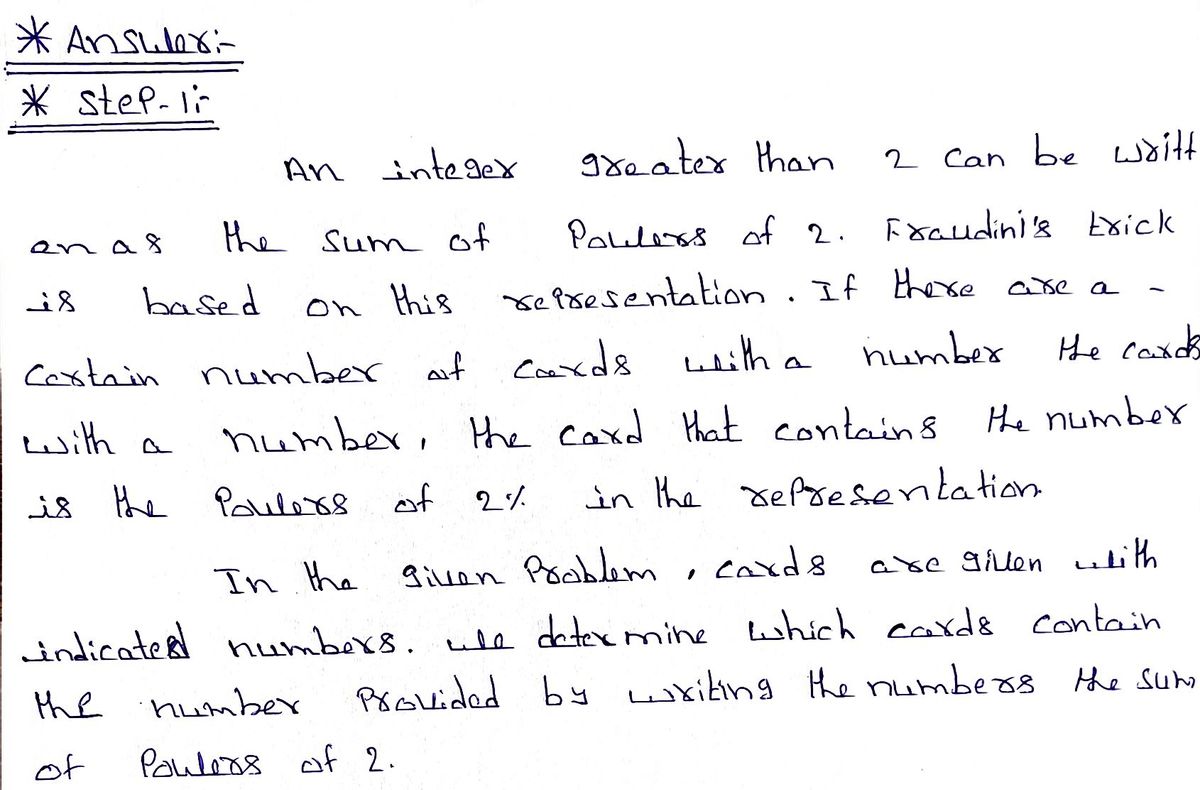 * Answer:-
* Step-1:-
An integer greater than 2 can be writt
en as the sum of Powers of 2. Fraudini's trick
is based on this representation. If there are a -
Certain number of cards with a number the cards
with a number, the card that contains the number
is the Powers of 2% in the representation
In the given Problem, cards are given with
indicated numbers. we determine which cards contain
the number Provided by writing the numbers the sum
of Powers of 2.